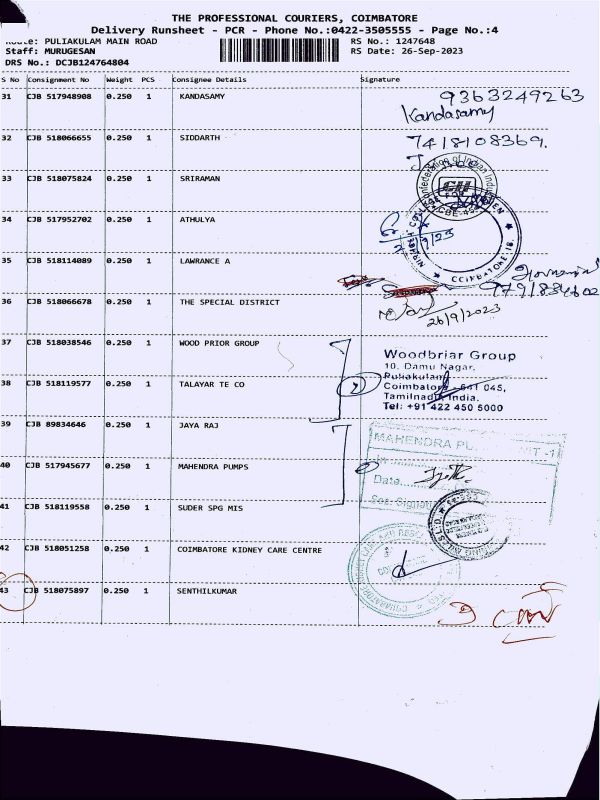 THE PROFESSIONAL COURIERS, COIMBATORE
Delivery Runsheet - PCR - Phone No.:0422-3505555 - Page No.:4
Route: PULIAKULAM MAIN ROAD RS No.: 1247648
Staff: MURUGESAN RS Date: 26-Sep-2023
DRS No.: DCJB124764804
S No Consignment No Weight PCS Consignee Details Signature
31 CJB 517948908 0.250 1 KANDASAMY 9363249263
Kandasamy
32 CJB 518066655 0.250 1 SIDDARTH 7418108369.
33 CJB 518075824 0.250 1 SRIRAMAN
Confederation of Indian
CII
34 CJB 517952702 0.250 1 ATHULYA
COIMBATORE 18.
35 CJB 518114089 0.250 1 LAWRANCE A
36 CJB 518066678 0.250 1 THE SPECIAL DISTRICT
26/9/2023
37 CJB 518038546 0.250 1 WOOD PRIOR GROUP
Woodbriar Group
10. Damu Nagar.
Puliakulam
38 CJB 518119577 0.250 1 TALAYAR TE CO 2
Coimbatore - 641 045,
Tamilnadu, India.
Tel: +91 422 450 5000
39 CJB 89834646 0.250 1 JAYA RAJ
MAHENDRA
40 CJB 517945677 0.250 1 MAHENDRA PUMPS
Date
41 CJB 518119558 0.250 1 SUDER SPG MIS
42 CJB 518051258 0.250 1 COIMBATORE KIDNEY CARE CENTRE
43 CJB 518075897 0.250 1 SENTHILKUMAR